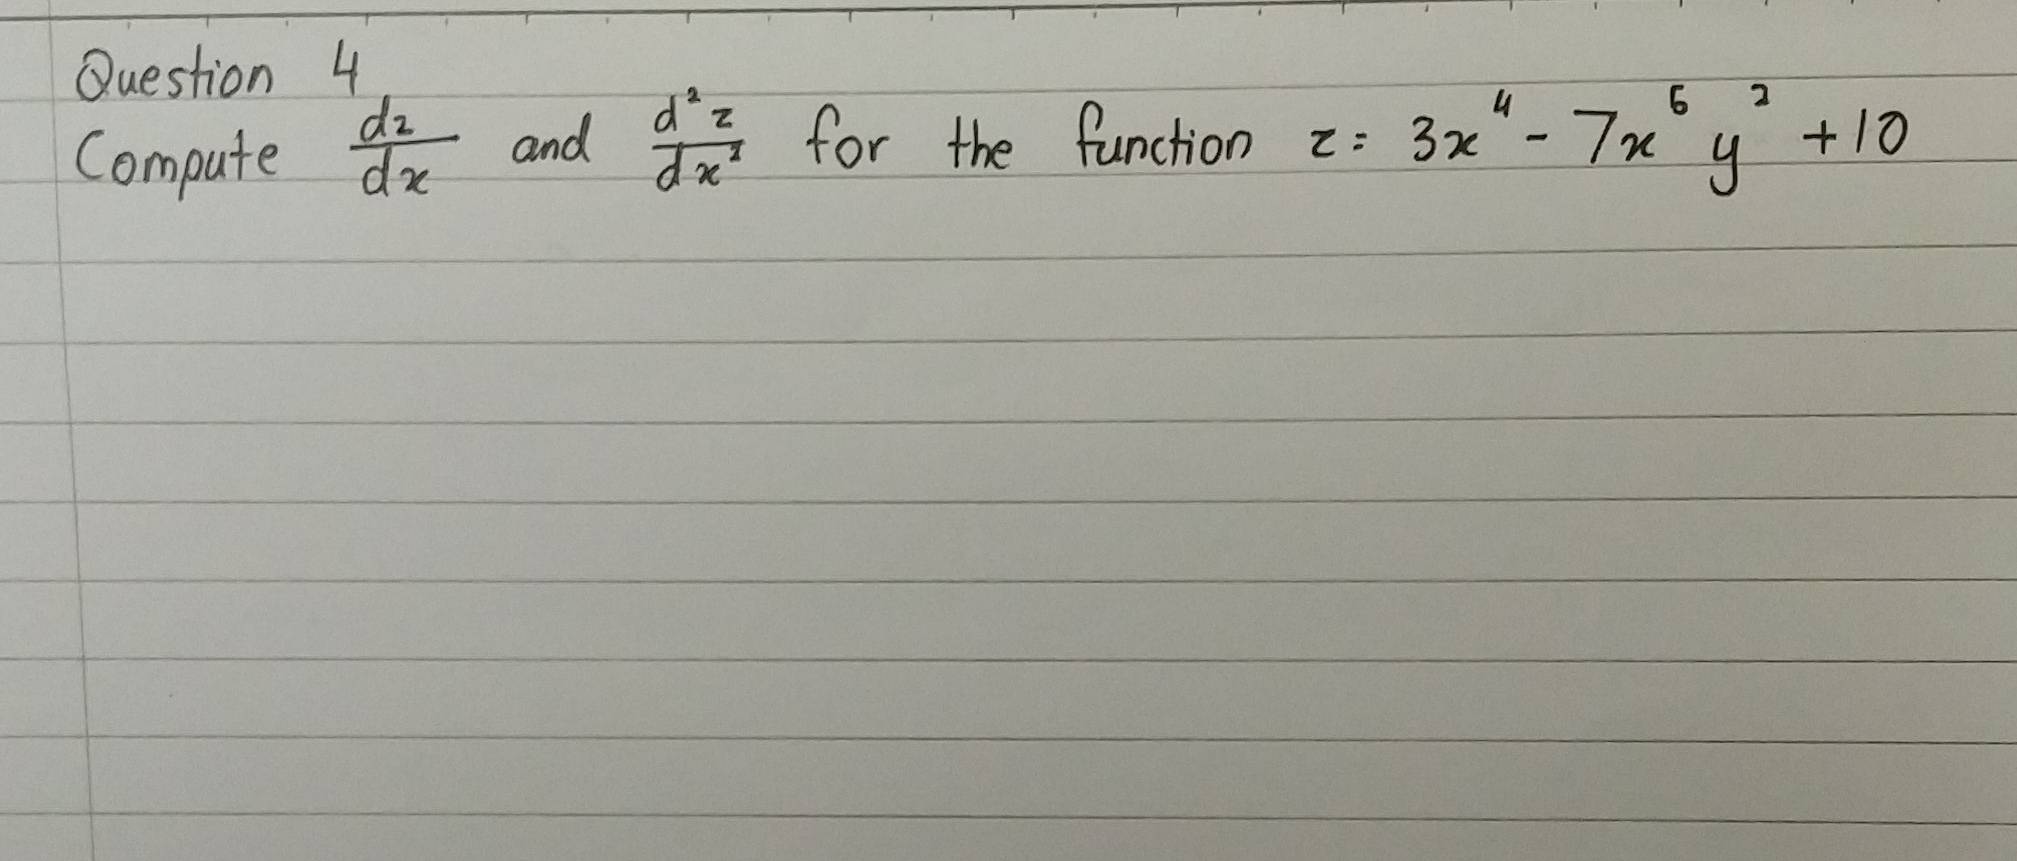 Question 4
Compute dz/dx and d²z/dx² for the function z = 3x⁴ - 7x⁶y² + 10